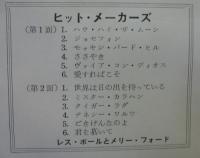 ヒット・メーカーズ
(第1面) 1. ハウ・ハイ・ザ・ムーン
2. ジョセフィン
3. モッキン・バード・ヒル
4. ささやき
5. ヴァイア・コン・ディオス
6. 愛すればこそ
(第2面) 1. 世界は日の出を待っている
2. ミスター・カラハン
3. タイガー・ラグ
4. テネシー・ワルツ
5. ごきげんなのよ
6. 君を慕いて
レス・ポールとメリー・フォード